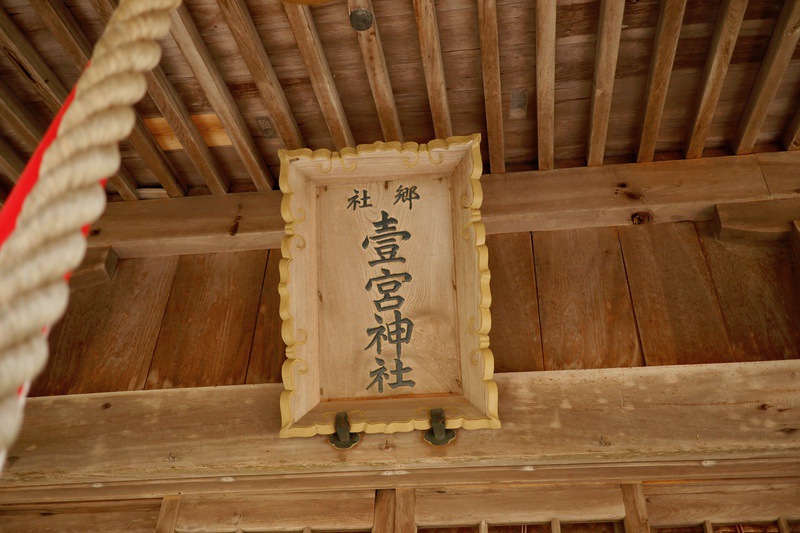 郷社
壹宮神社